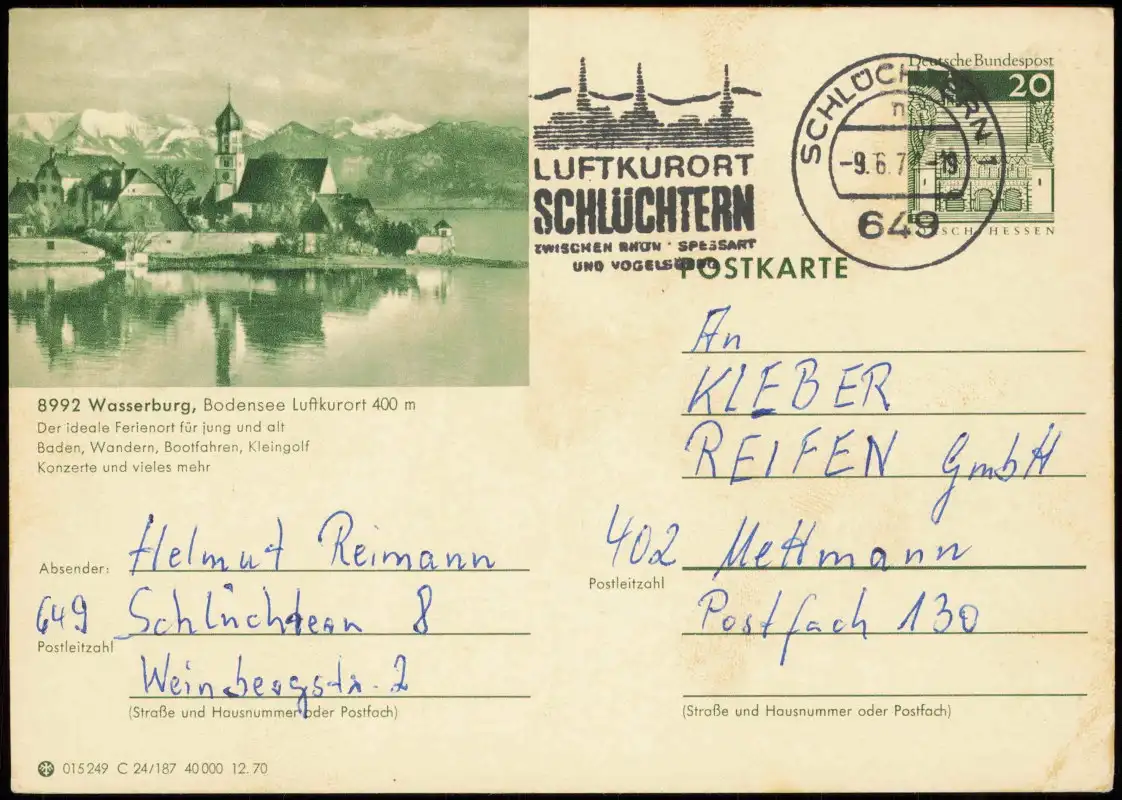 Deutsche Bundespost
20
LUFTKURORT
SCHLÜCHTERN
ZWISCHEN RHÖN · SPESSART
UND VOGELSBERG
SCHLÜCHTERN 1
n
-9.6.7 -19
649
HESSEN
POSTKARTE
8992 Wasserburg, Bodensee Luftkurort 400 m
Der ideale Ferienort für jung und alt
Baden, Wandern, Bootfahren, Kleingolf
Konzerte und vieles mehr
An
KLEBER
REIFEN GmbH
402 Mettmann
Postleitzahl
Postfach 130
(Straße und Hausnummer oder Postfach)
Absender: Helmut Reimann
649 Schlüchtern 8
Postleitzahl
Weinbergstr. 2
(Straße und Hausnummer oder Postfach)
015249 C 24/187 40000 12.70